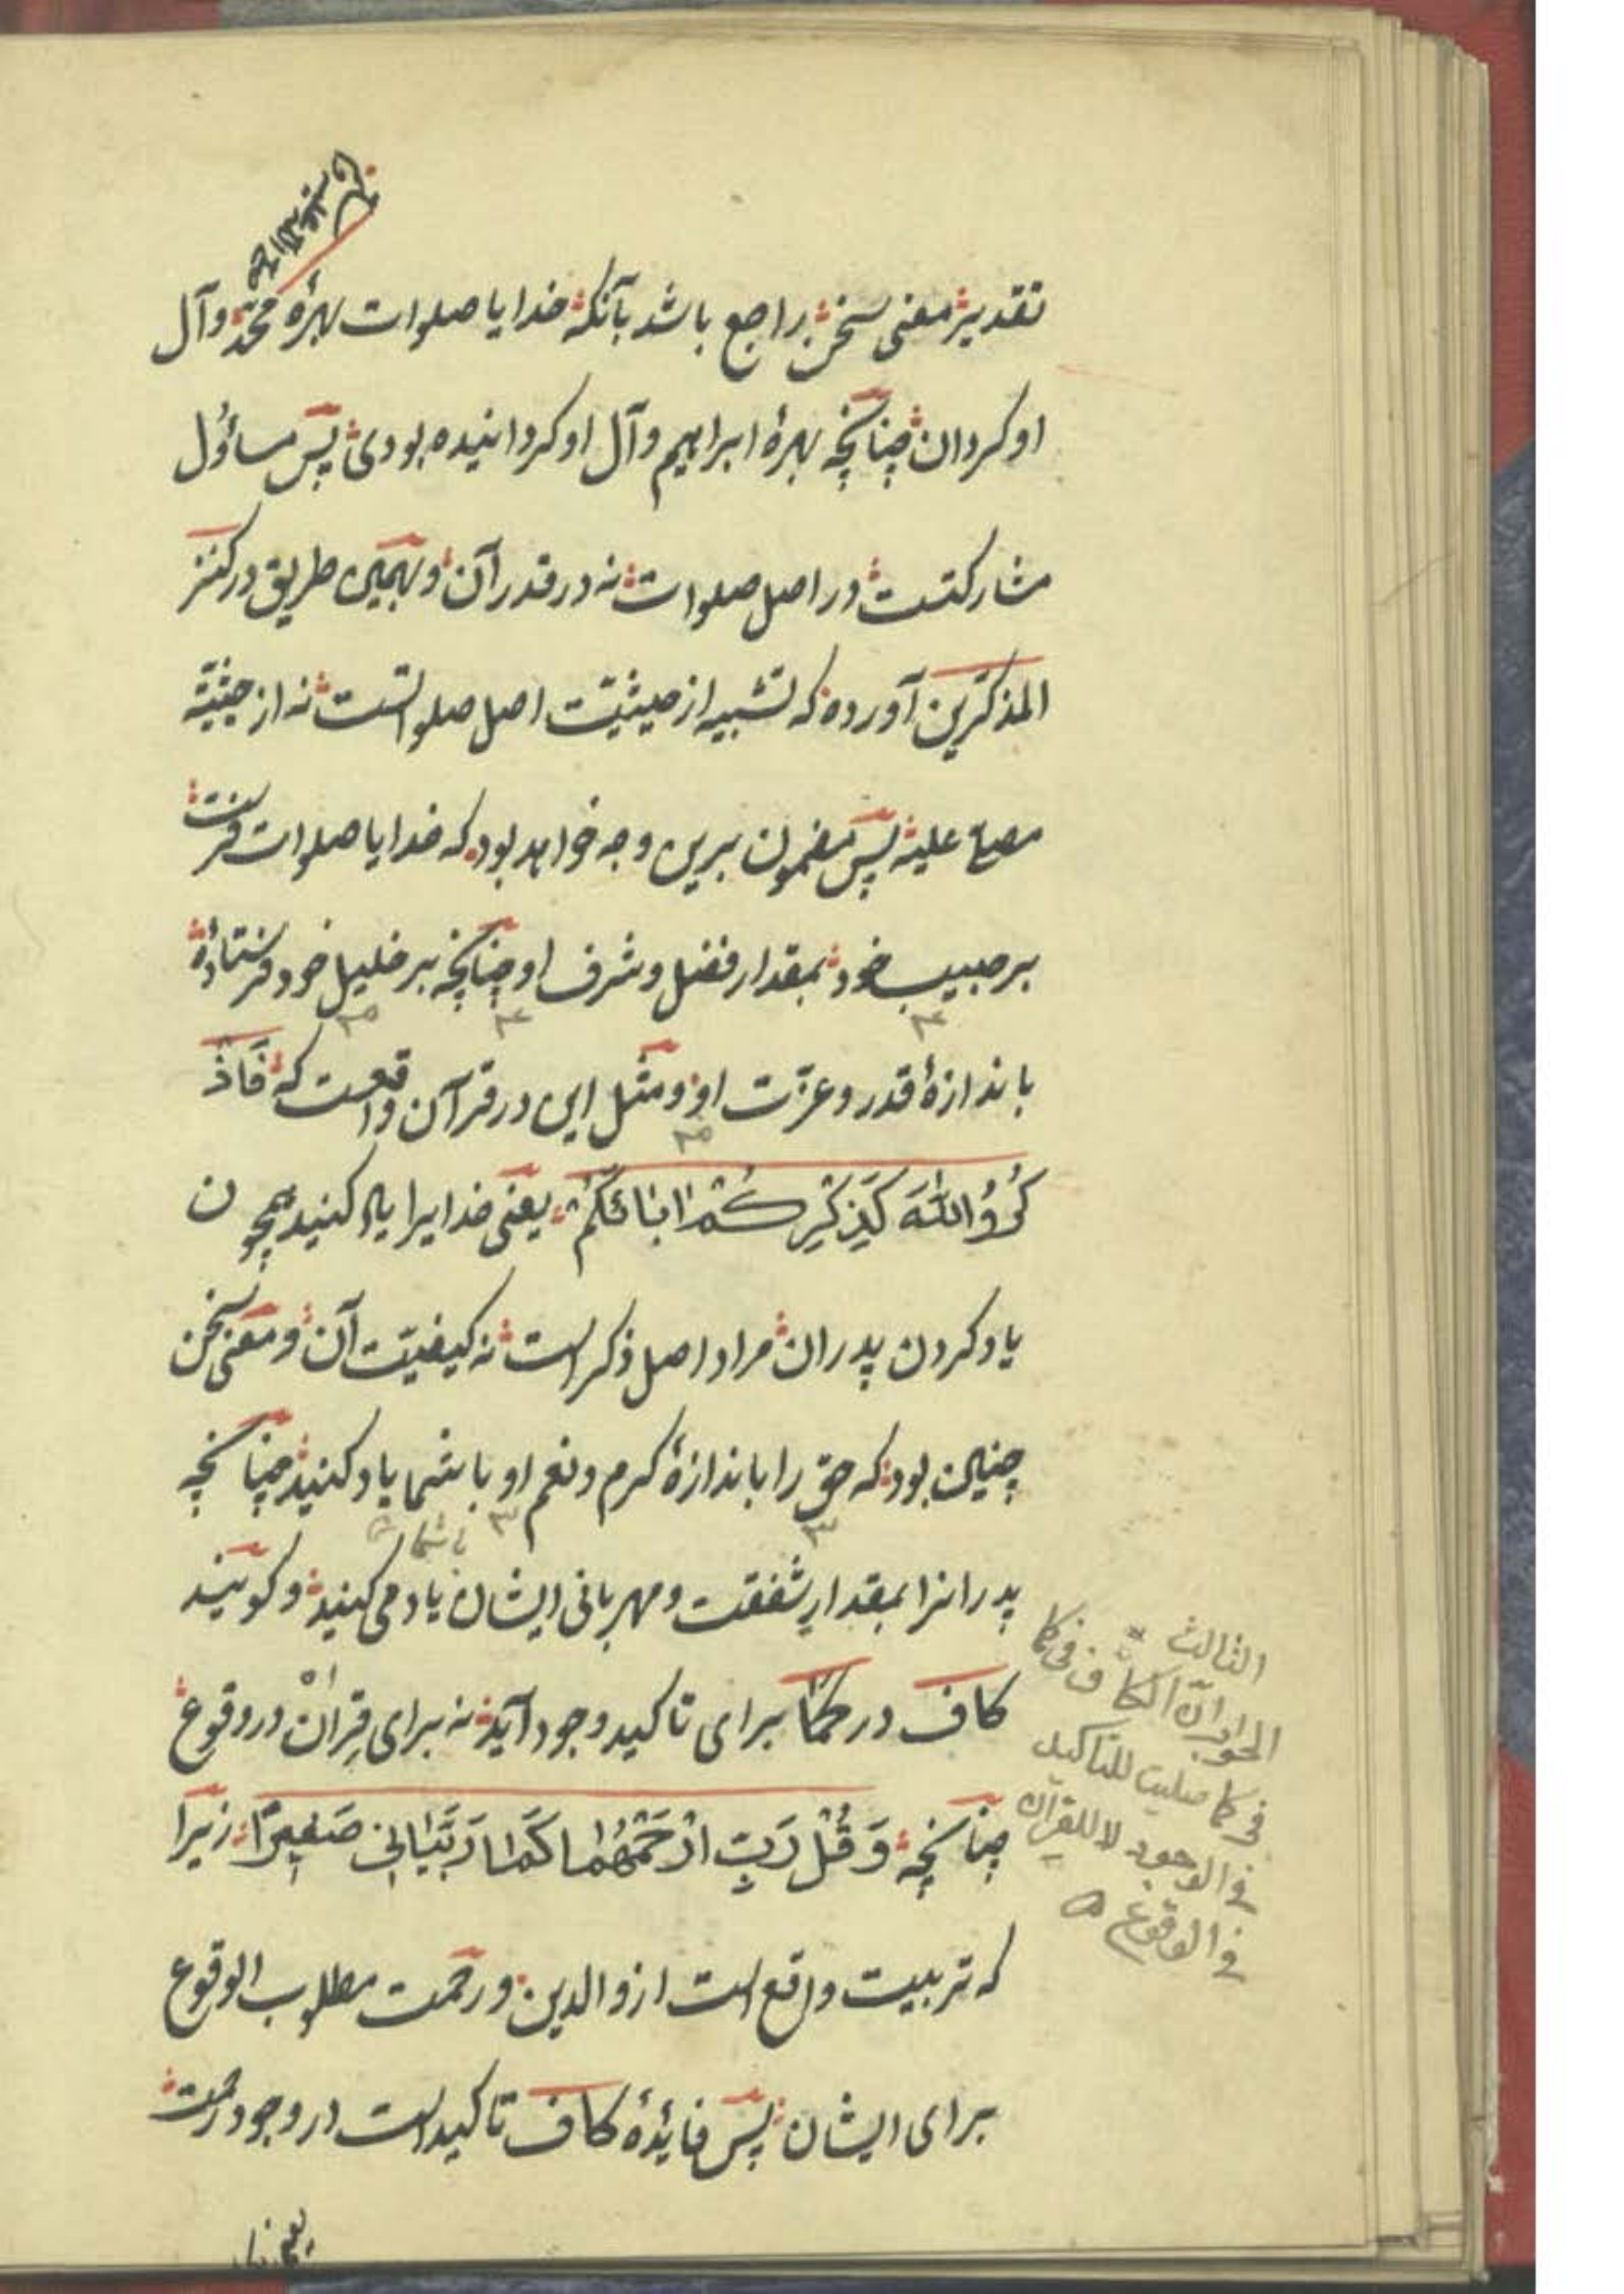 تقدیر معنی سخن راجع باشد بآنکه خدایا صلوات بهرهٔ محمّد وآل
او کردان چنانچه بهرهٔ ابراهیم وآل او کردانیده بودی پس مساؤل
مشارکتست در اصل صلوات نه در قدر آن و بهمین طریق در کنز
المذکرین آورده که تشبیه از حیثیّت اصل صلواتست نه از حیثیّة
مصلی علیه پس مضمون برین وجه خواهد بود که خدایا صلوات فرست
بر حبیب خود بمقدار فضل وشرف او چنانچه بر خلیل خود فرستادهٔ
باندازهٔ قدر وعزّت او ومثل این در قرآن واقعست که فَاذْ
کُرُوُاللّٰهَ کَذِکْرِکُمْ اٰبَائَکُمْ یعنی خدایرا یاد کنید همچون
یاد کردن پدران مراد اصل ذکر است نه کیفیّت آن ومعنی سخن
چنین بود که حقّ را باندازهٔ کرم ونعم او باشما یاد کنید چنانچه
پدرانرا بمقدار شفقت ومهربانی ایشان یاد می کنید وکویند
باشما
کاف در کَمَا برای تاکید وجود آید نه برای قِرانْ در وقوع
چنانچه وَقُلْ رَبِّ ارْحَمْهُمٰا کَمٰا رَبَّیَانِی صَغِیرًا زیرا
که تربیت واقع است از والدین ورحمت مطلوب الوقوع
برای ایشان پس فایدهٔ کاف تاکید است در وجود رحمت
الثالث
الجواب انّ الکاف فی کما
فی کما صلیت للتاکید
فی الوجود لا للقرآن
فی الوقوع